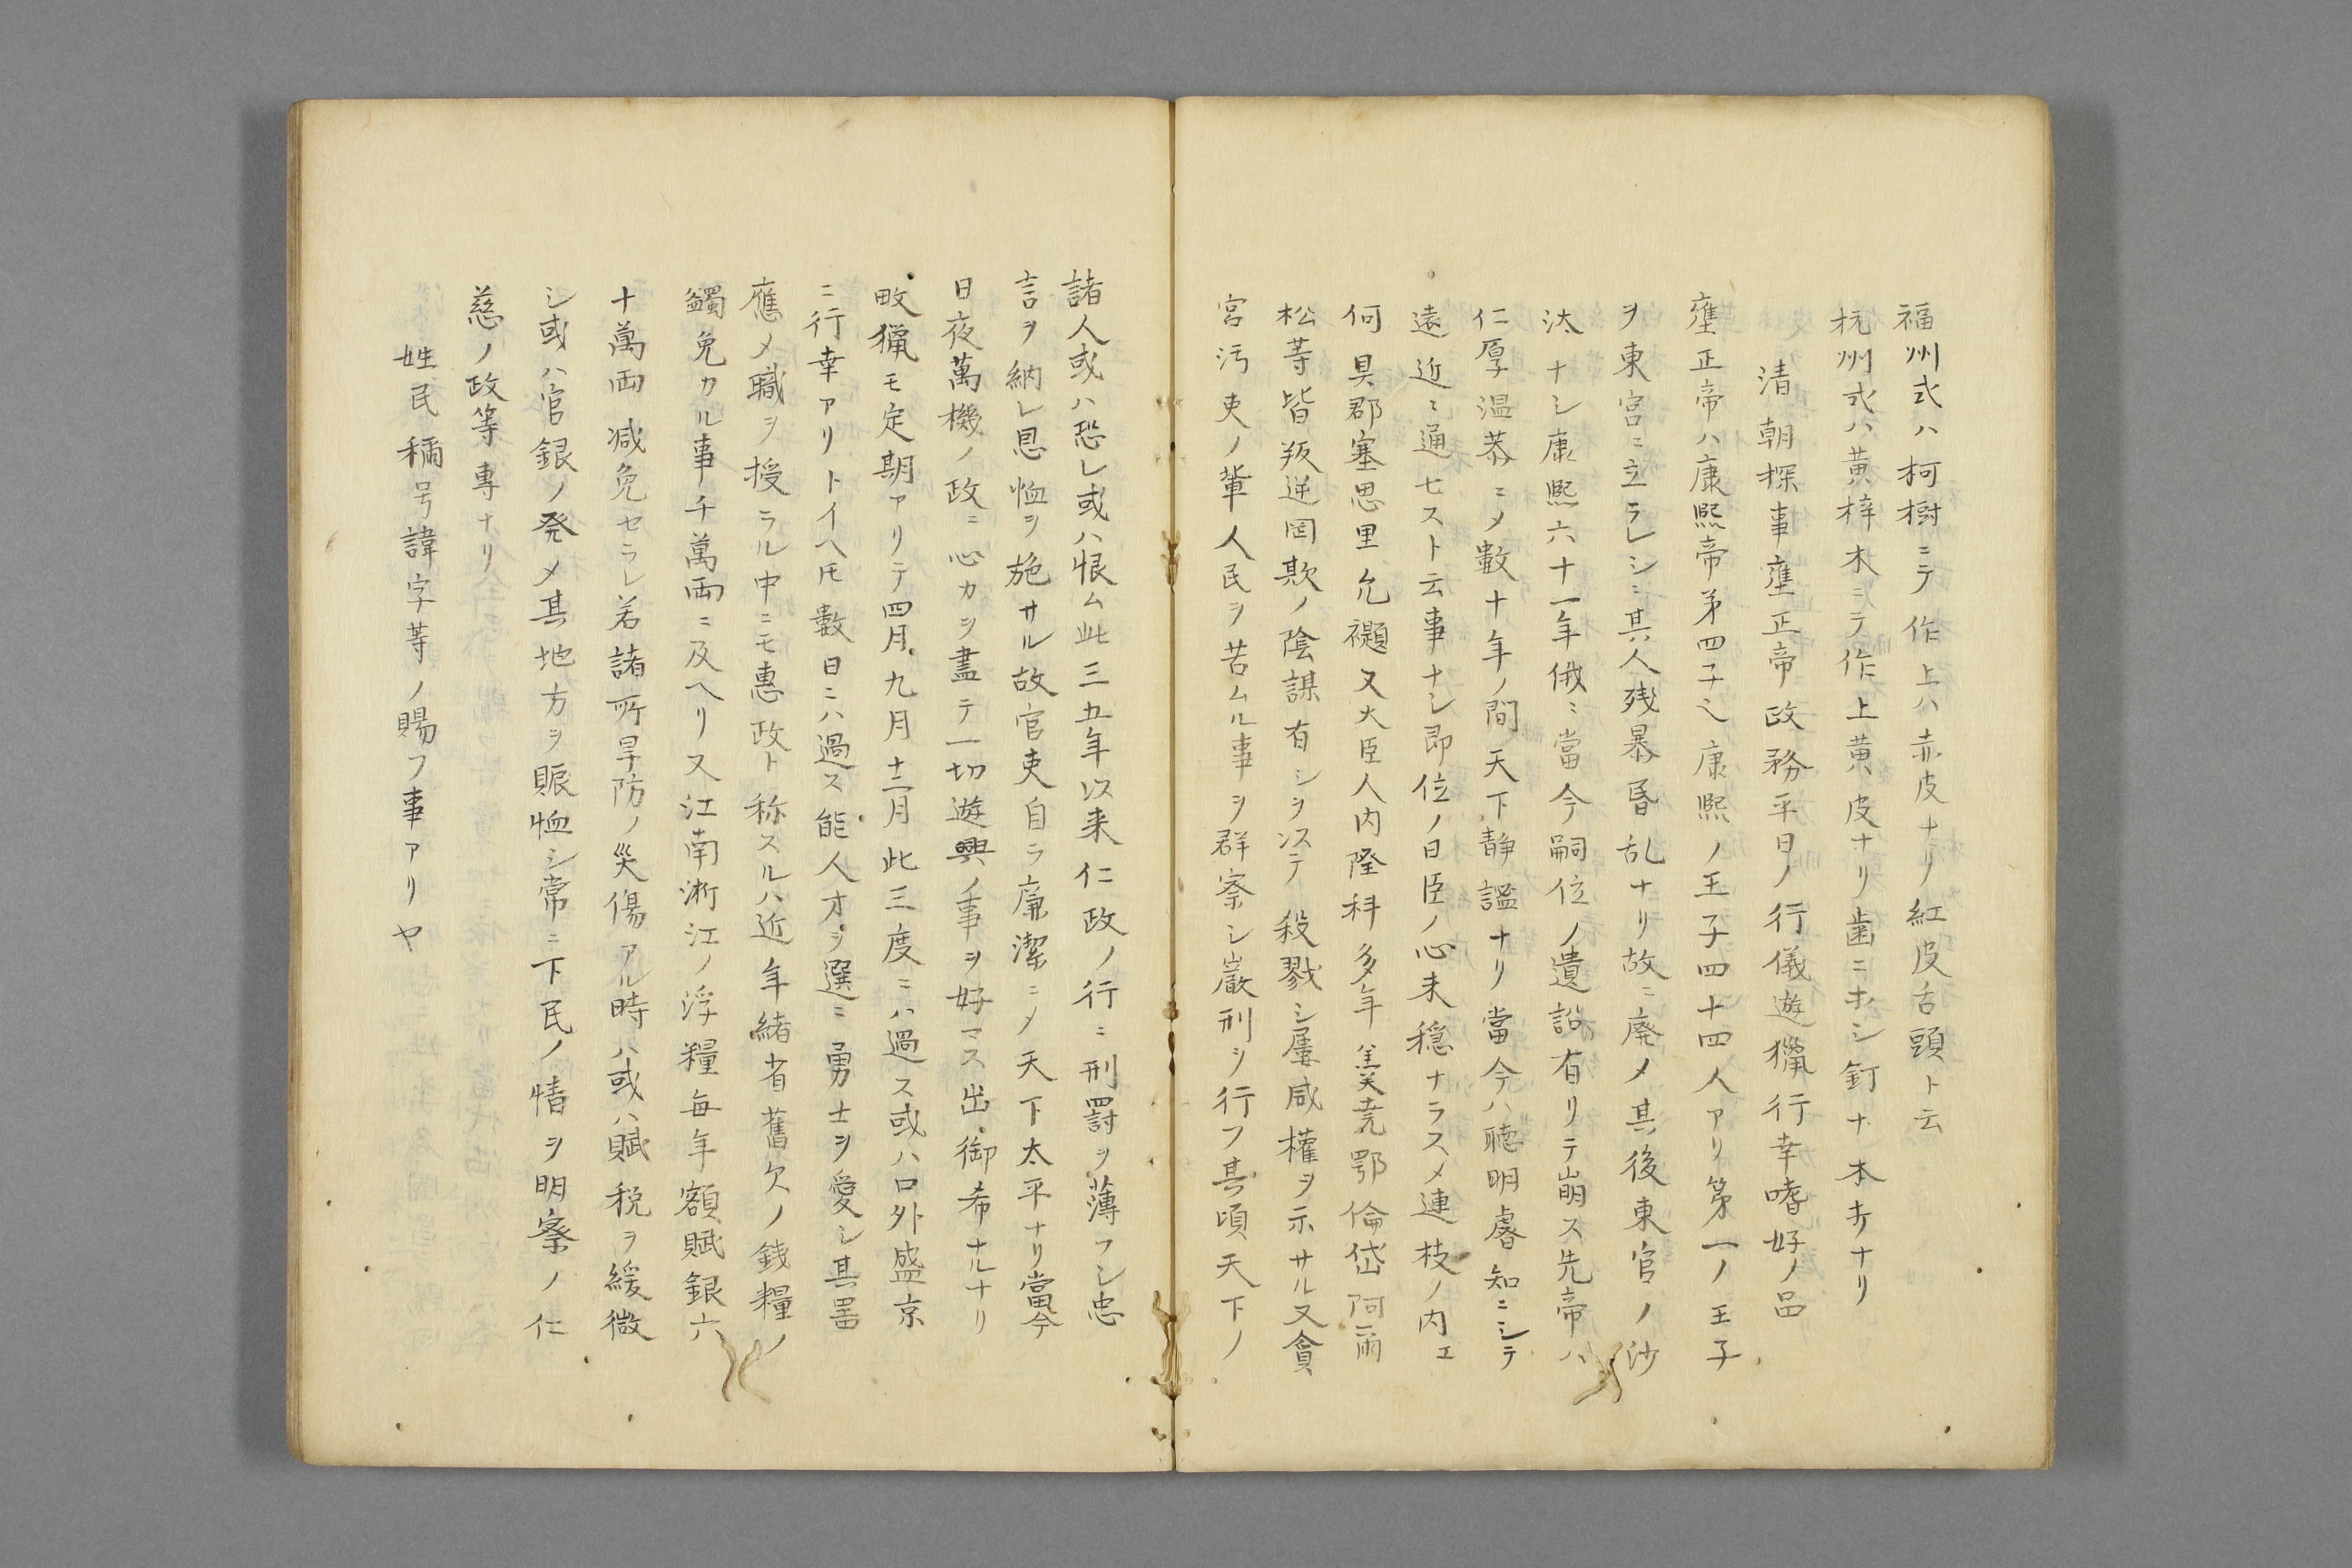 福州式ハ柯樹ニテ作上ハ赤皮ナリ紅皮舌頭ト云
杭州式ハ黄梓木ニテ作上黄皮ナリ歯ニホシ釘ナ本キナリ
清朝探事壅正帝政務平日ノ行儀遊獵行幸嗜好ノ品
壅正帝ハ康熙帝第四子也康熙ノ王子四十四人アリ第一ノ王子
ヲ東宮ニ立ラレシニ其人残暴昏乱ナリ故ニ廃メ其後東官ノ沙
汰ナシ康熙六十一年俄ニ當今嗣位ノ遺詔有リテ崩ス先帝ハ
仁厚温恭ニメ數十年ノ間天下静謐ナリ當今ハ聴明睿知ニシテ
遠近ニ通セスト云事ナシ即位ノ日臣ノ心未穏ナラスメ連枝ノ内エ
何具郡塞思里允禵又大臣人内隆科多年羙堯鄂倫岱阿爾
松等皆叛逆罔欺ノ陰謀有シヲ次テ殺戮シ屡威權ヲ示サル又貪
宮汚吏ノ輩人民ヲ苦ムル事ヲ群察シ嚴刑ヲ行フ其頃天下ノ
諸人或ハ恐レ或ハ恨ム此三五年以来仁政ノ行ニ刑罸ヲ薄フシ忠
言ヲ納レ恩恤ヲ施サル故官吏自ラ廉潔ニメ天下太平ナリ當今
日夜萬機ノ政ニ心カヲ盡テ一切遊興ノ事ヲ好マス出御希ナルナリ
畋猟モ定期アリテ四月九月十二月此三度ニハ過ス或ハ口外盛京
ニ行幸アリトイヘ𪜈數日ニハ過ス能人才ヲ選ニ勇士ヲ愛シ其噐
應メ職ヲ授ラル中ニモ惠政ト称スルハ近年緒省舊欠ノ銭糧ノ
蠲免カル事千萬両ニ及ヘリ又江南淅江ノ浮糧毎年額賦銀六
十萬両减免セラレ若諸所旱防ノ災傷アル時ハ或ハ賦税ヲ緩微
シ或ハ官銀ノ発メ其地方ヲ賑恤シ常ニ下民ノ情ヲ明察ノ仁
慈ノ政等專ナリ
姓民稱号諱字等ノ賜フ事アリヤ